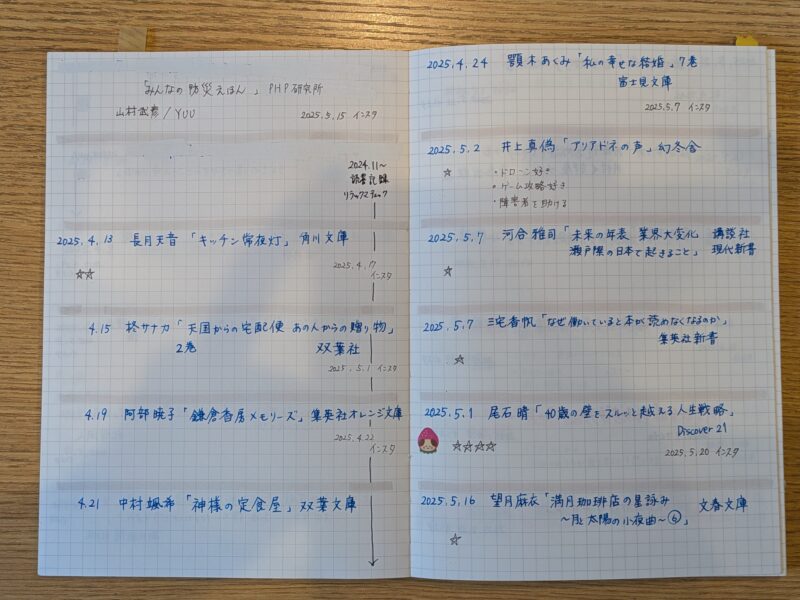 「みんなの防災えほん」 PHP研究所
山村武彦/YUU
2025.5.15 インスタ
2024.11〜
読書記録
リラックスティック
2025.4.13 長月天音「キッチン常夜灯」角川文庫
☆☆
2025.4.17
インスタ
4.15 柊サナカ「天国からの宅配便 あの人からの贈り物」
2巻 双葉社
2025.5.1 インスタ
4.19 阿部暁子「鎌倉香房メモリーズ」集英社オレンジ文庫
2025.4.22
インスタ
4.21 中村颯希「神様の定食屋」双葉文庫
2025.4.24 顎木あくみ「私の幸せな結婚」7巻
富士見文庫
2025.5.7 インスタ
2025.5.2 井上真偽「アリアドネの声」幻冬舎
☆
・ドローン好き
・ゲーム攻略好き
・障害者を助ける
2025.5.7 河合雅司「未来の年表 業界大変化 講談社
瀬戸際の日本で起きること」 現代新書
☆
2025.5.7 三宅香帆「なぜ働いていると本が読めなくなるのか」
集英社新書
☆
2025.5.1 尾石晴「40歳の壁をスルッと越える人生戦略」
Discover21
☆☆☆☆
2025.5.20 インスタ
2025.5.16 望月麻衣「満月珈琲店の星詠み 文春文庫
〜月と太陽の小夜曲〜⑥」
☆